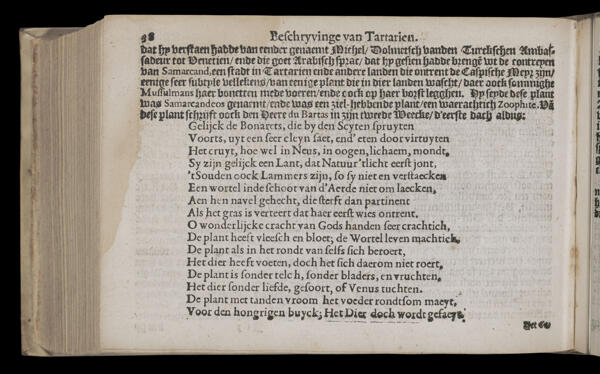 98 Beschryvinge van Tartarien.
dat hy verstaen hadde van eender genaemt Michel/ Dolmetsch vanden Turckschen Ambas-
sadeur tot Venetien/ ende die goet Arabisch sprac/ dat hy gesien hadde brengē wt de contreyen
van Samarcand, een stadt in Tartarien ende andere landen die ontrent de Caspische Meyr zijn/
eenige seer subtyle vellekens/ van eenige plant die in dier landen wascht/ daer oock sommighe
Mussulmans haer bonetten mede voeren/ ende oock op haer borst legghen. Hy seyde dese plant
was Samarcandeos genaemt/ ende was een ziel-hebbende plant/ een warrachtich Zoophite. Vā
dese plant schrijft oock den Heere du Bartas in zijn tweede Weecke/ d'eerste dach aldus:
Gelijck de Bonarets, die by den Scyten spruyten
Voorts, uyt een seer cleyn saet, end' eten door virtuyten
Het cruyt, hoe wel in Neus, in oogen, lichaem, mondt,
Sy zijn gelijck een Lant, dat Natuur 'tlicht eerst jont,
'tSouden oock Lammers zijn, so sy niet en verstaecken
Een wortel inde schoot van d'Aerde niet om laecken,
Aen hen navel gehecht, die sterft dan partinent
Als het gras is verteert dat haer eerst wies ontrent.
O wonderlijcke cracht van Gods handen seer crachtich,
De plant heeft vleesch en bloet; de Wortel leven machtich,
De plant als in het rondt van selfs sich beroert,
Het dier heeft voeten, doch het sich daerom niet roert,
De plant is sonder telch, sonder bladers, en vruchten,
Het dier sonder liefde, gesoort, of Venus tuchten.
De plant met tanden vroom het voeder rondtsom maeyt,
Voor den hongrigen buyck; Het Dier doch wordt gesaeyt